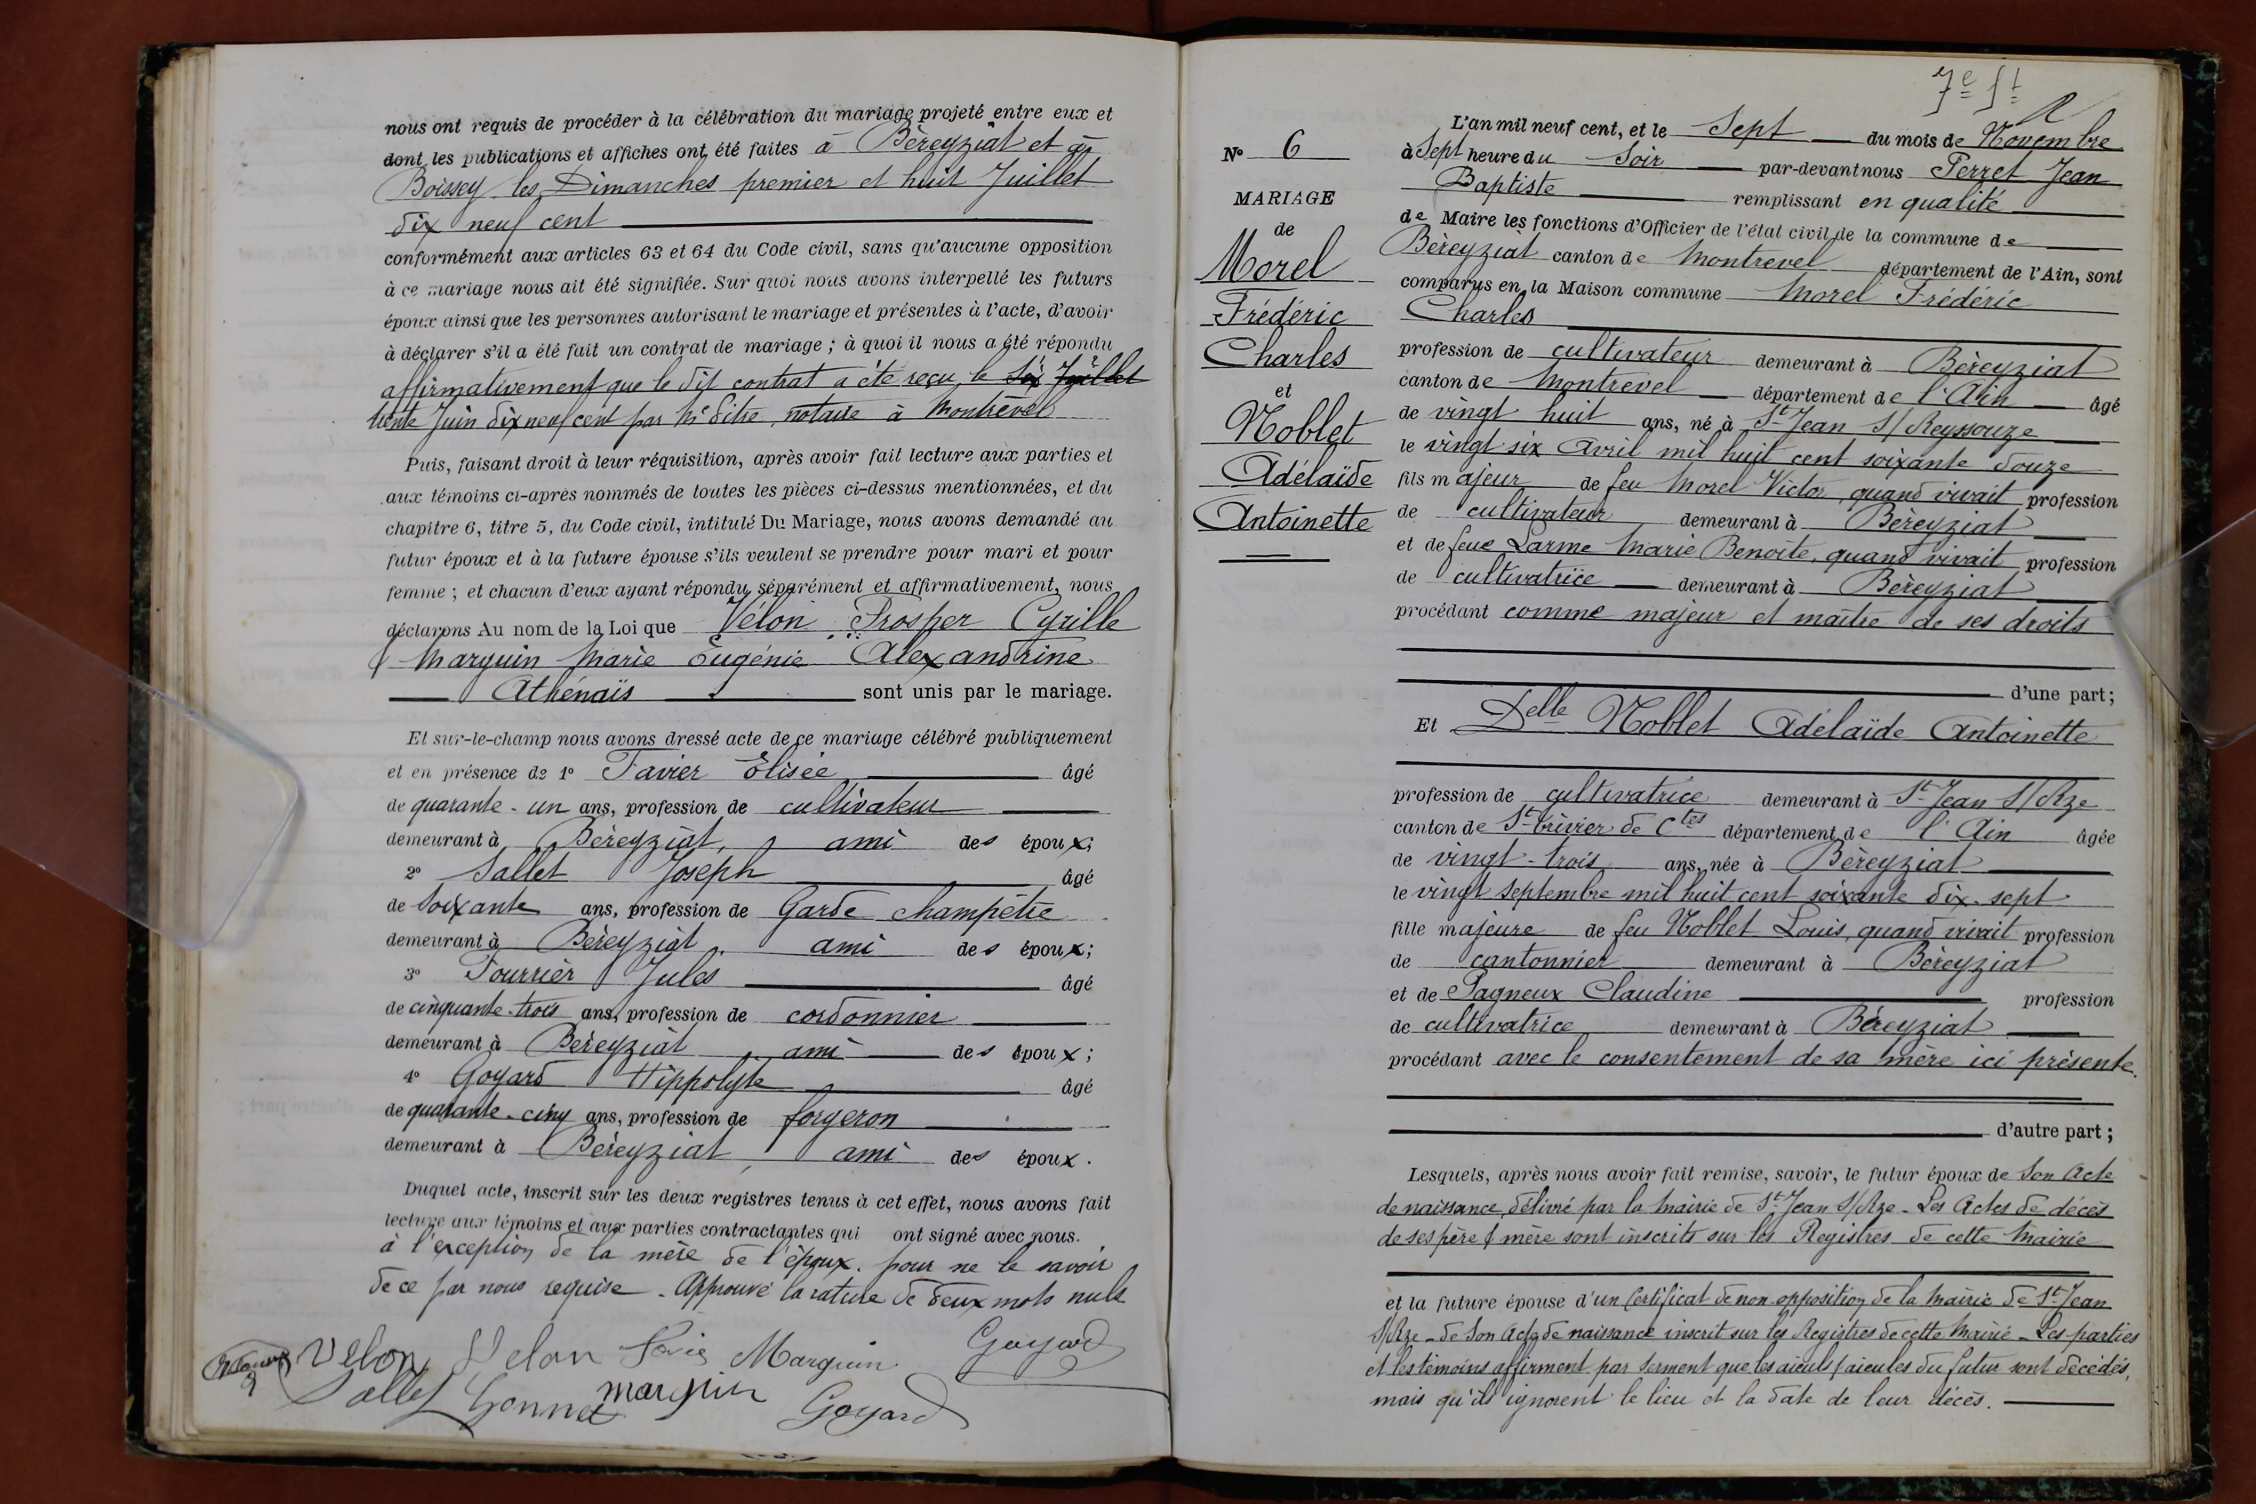 nous ont requis de procéder à la célébration du mariage projeté entre eux et
dont les publications et affiches ont été faites à Béreyziat et à
Boissey les Dimanches premier et huit Juillet
dix neuf cent
conformément aux articles 63 et 64 du Code civil, sans qu'aucune opposition
à ce mariage nous ait été signifiée. Sur quoi nous avons interpellé les futurs
époux ainsi que les personnes autorisant le mariage et présentes à l'acte, d'avoir
à déclarer s'il a été fait un contrat de mariage ; à quoi il nous a été répondu
affirmativement que le dit contrat a été reçu le Six Juillet
trente Juin dix neuf cent par Me notaire à Montrevel
Puis, faisant droit à leur réquisition, après avoir fait lecture aux parties et
aux témoins ci-après nommés de toutes les pièces ci-dessus mentionnées, et du
chapitre 6, titre 5, du Code civil, intitulé Du Mariage, nous avons demandé au
futur époux et à la future épouse s'ils veulent se prendre pour mari et pour
femme ; et chacun d'eux ayant répondu séparément et affirmativement, nous
déclarons Au nom de la Loi que Vélon Prosper Cyrille
& Marguin Marie Eugénie Alexandrine
Athénaïs sont unis par le mariage.
Et sur-le-champ nous avons dressé acte de ce mariage célébré publiquement
et en présence de 1° Favier Élisée âgé
de quarante-un ans, profession de cultivateur
demeurant à Béreyziat, ami des époux;
2° Sallet Joseph âgé
de Soixante ans, profession de Garde champêtre
demeurant à Béreyziat, ami des époux;
3° Fourrier Jules âgé
de cinquante-trois ans, profession de cordonnier
demeurant à Béreyziat ami des époux;
4° Goyard Hippolyte âgé
de quarante-cinq ans, profession de forgeron
demeurant à Béreyziat, ami des époux.
Duquel acte, inscrit sur les deux registres tenus à cet effet, nous avons fait
lecture aux témoins et aux parties contractantes qui ont signé avec nous.
à l'exception de la mère de l'époux. pour ne le savoir
de ce par nous requise. Approuvé la rature de deux mots nuls
Velon Velon Marguin Goyard
Sallet marguin Goyard
7e ft
N° 6
MARIAGE
de
Morel
Frédéric
Charles
et
Noblet
Adélaïde
Antoinette
L'an mil neuf cent, et le Sept du mois de Novembre
à Sept heure du Soir par-devant nous Perret Jean
Baptiste remplissant en qualité
de Maire les fonctions d'Officier de l'état civil de la commune de
Béreyziat canton de Montrevel département de l'Ain, sont
comparus en la Maison commune Morel Frédéric
Charles
profession de cultivateur demeurant à Béreyziat
canton de Montrevel département de l'Ain âgé
de vingt huit ans, né à St Jean S/ Reyssouze
le vingt six Avril mil huit cent soixante douze
fils majeur de feu Morel Victor, quand vivait profession
de cultivateur demeurant à Béreyziat
et de feue Larme Marie Benoîte, quand vivait profession
de cultivatrice demeurant à Béreyziat
procédant comme majeur et maître de ses droits
d'une part;
Et Delle Noblet Adélaïde Antoinette
profession de cultivatrice demeurant à St Jean S/ Rze
canton de St Trivier de Ctes département de l'Ain âgée
de vingt-trois ans, née à Béreyziat
le vingt Septembre mil huit cent soixante dix-sept
fille majeure de feu Noblet Louis, quand vivait profession
de cantonnier demeurant à Béreyziat
et de Pagneux Claudine profession
de cultivatrice demeurant à Béreyziat
procédant avec le consentement de sa mère ici présente.
d'autre part;
Lesquels, après nous avoir fait remise, savoir, le futur époux de Son Acte
de naissance, délivré par la Mairie de St Jean S/ Rze - Les Actes de décès
de ses père & mère sont inscrits sur les Registres de cette Mairie
et la future épouse d'un Certificat de non opposition de la Mairie de St Jean
S/ Rze - de Son Acte de naissance inscrit sur les Registres de cette Mairie - Les parties
et les témoins affirment par Serment que les aïeuls & aïeules du futur sont décédés,
mais qu'ils ignorent le lieu et la date de leur décès.